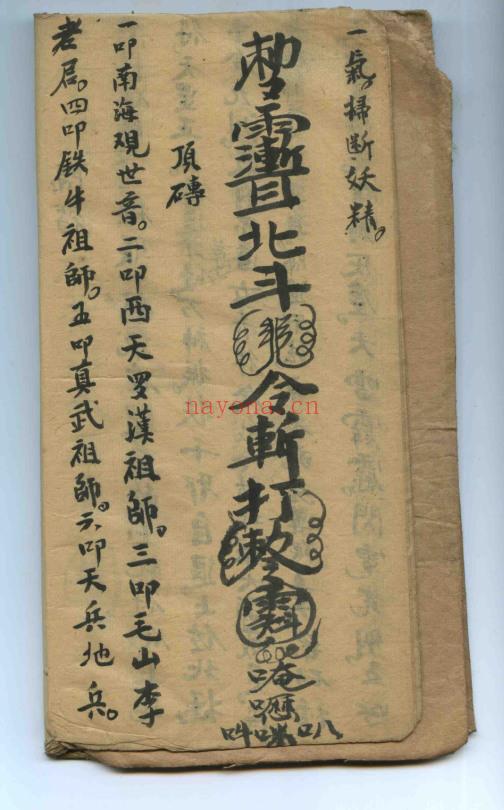 一氣。掃斷妖精。
勅 北斗 令斬打 唵
吽 叭
頂磚
一叩南海观世音。二叩西天罗漢祖師。三叩毛山李
老君。四叩鉄牛祖師。五叩真武祖師。六叩天兵地兵。
nayona.cn